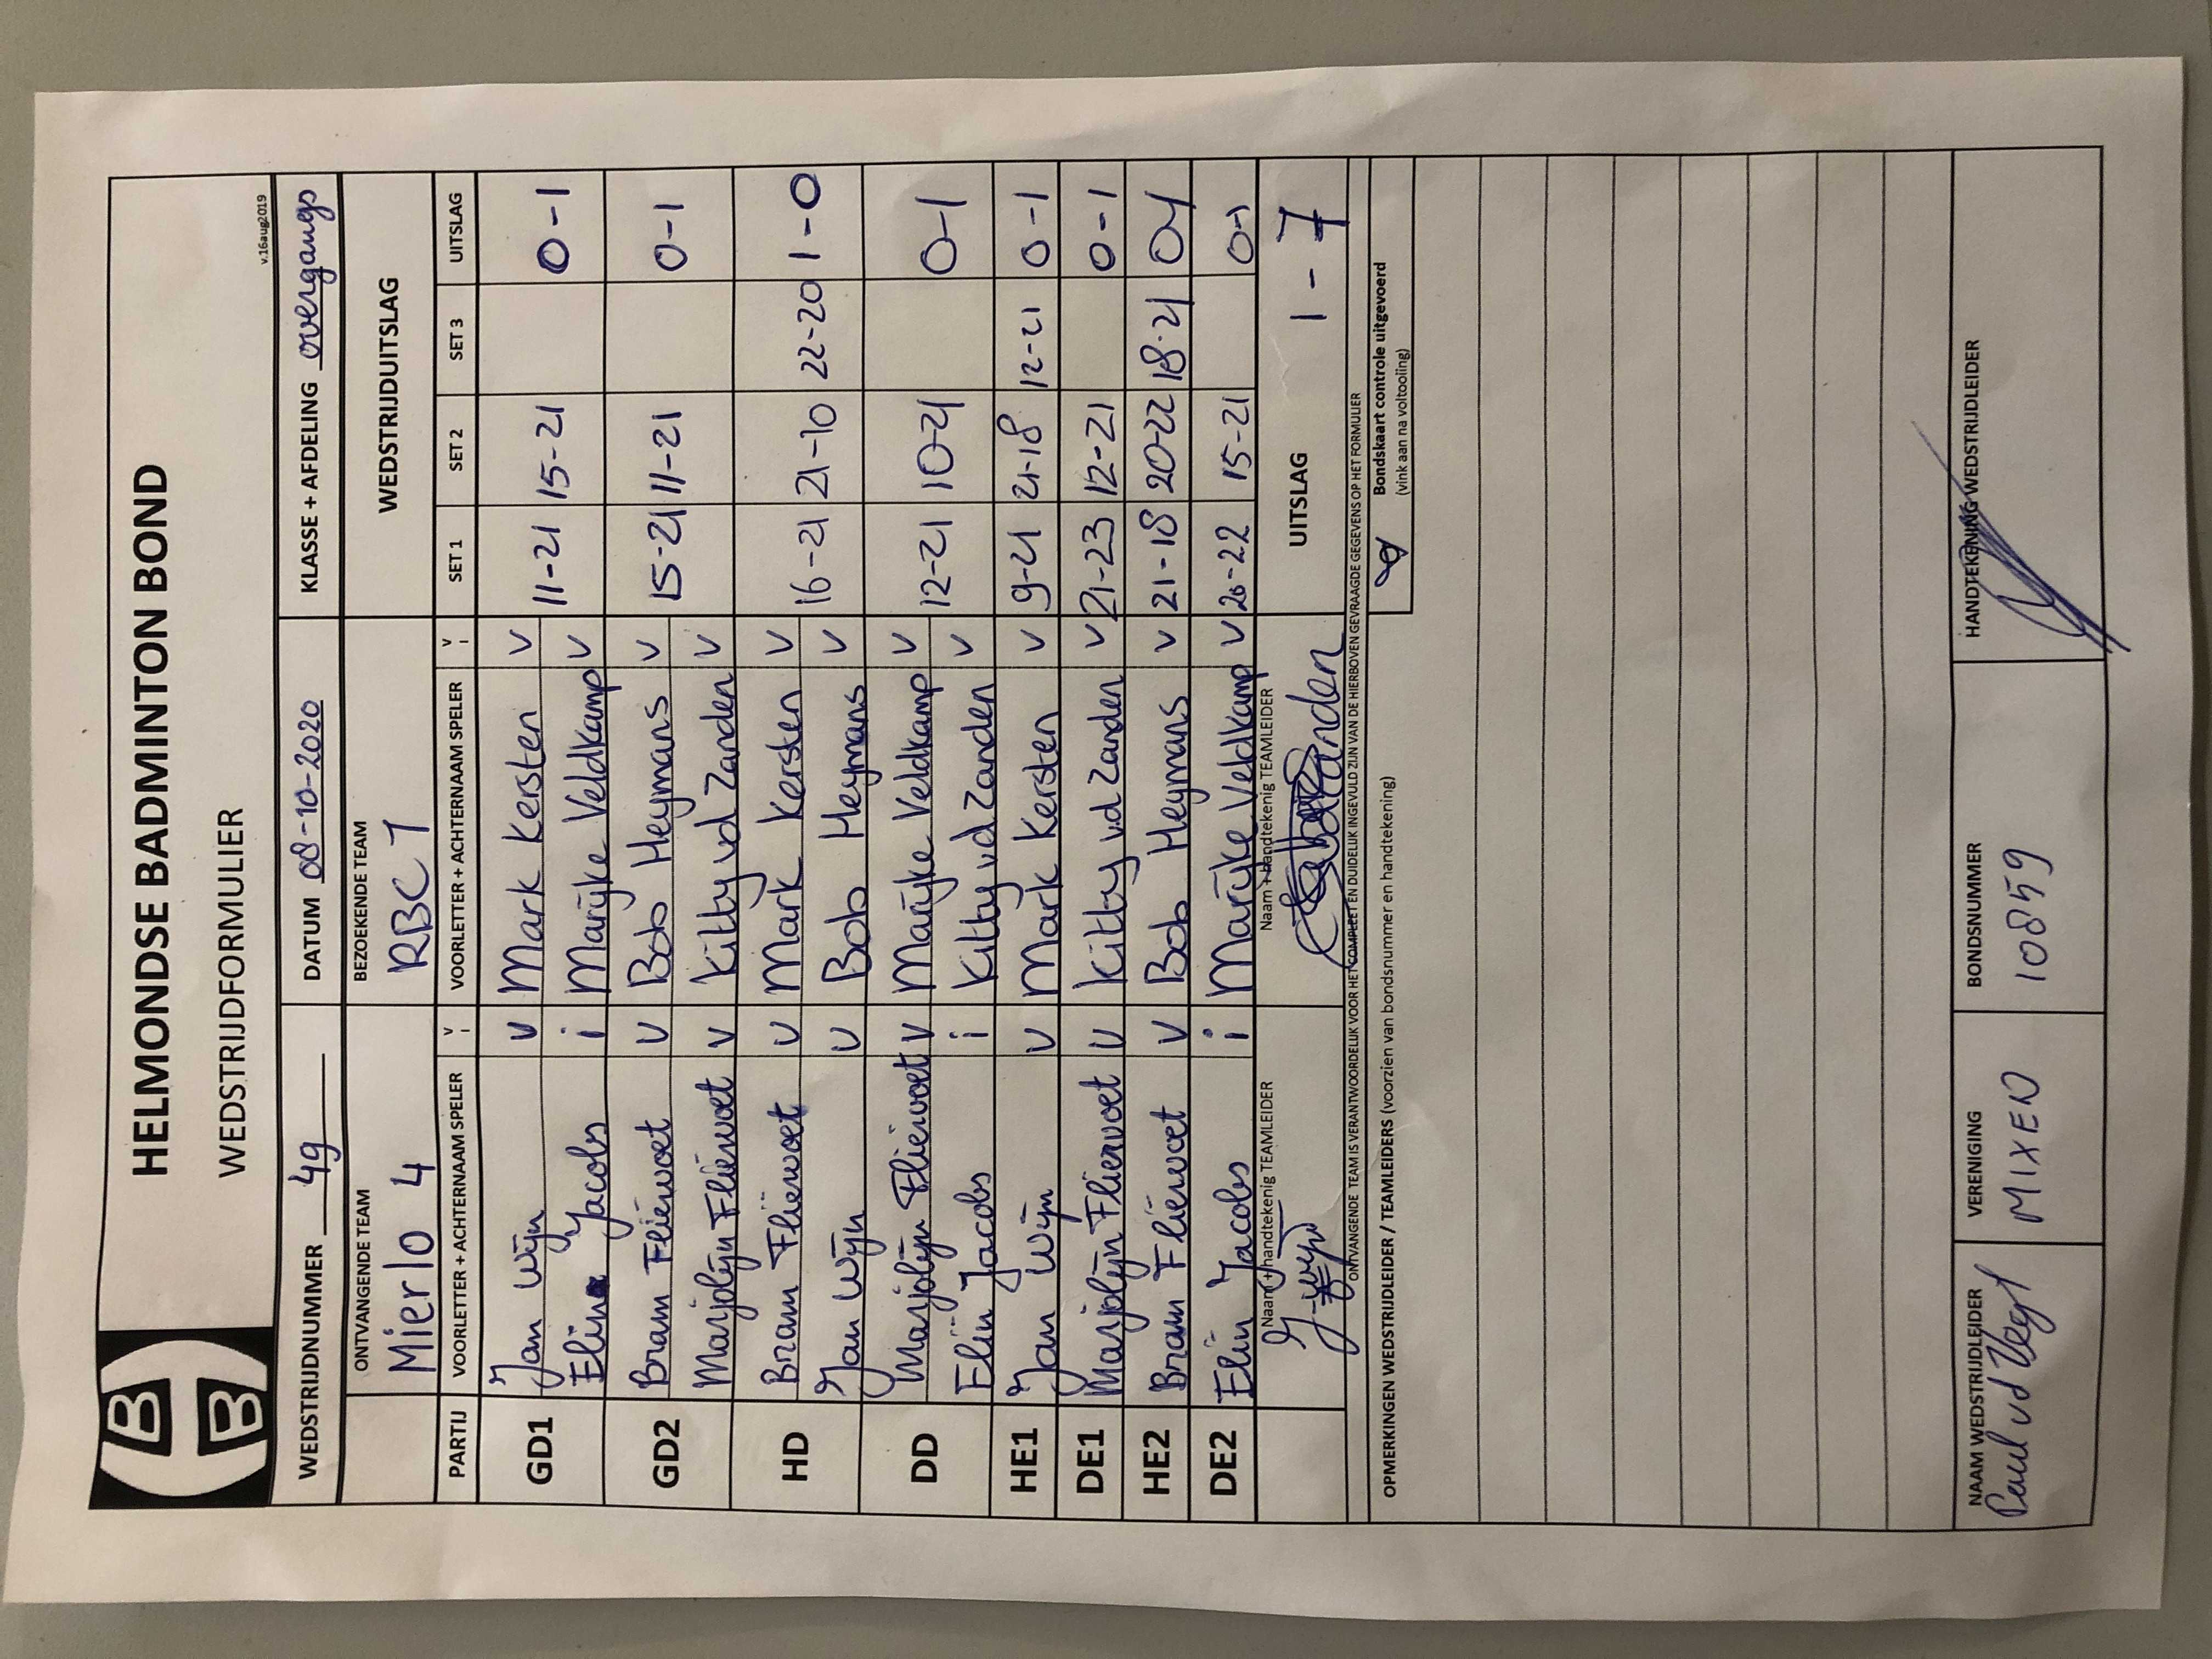 B
B
HELMONDSE BADMINTON BOND
WEDSTRIJDFORMULIER
v.16aug2019
WEDSTRIJDNUMMER 49 DATUM 08-10-2020 KLASSE + AFDELING overgangs
ONTVANGENDE TEAM BEZOEKENDE TEAM WEDSTRIJDUITSLAG
Mierlo 4 RBC 1
PARTIJ VOORLETTER + ACHTERNAAM SPELER V I VOORLETTER + ACHTERNAAM SPELER V I SET 1 SET 2 SET 3 UITSLAG
GD1 Jan Wijn v Mark Kersten v 11-21 15-21 0-1
Elin Jacobs i Marijke Veldkamp v
GD2 Bram Fliervoet v Bob Heymans v 15-21 11-21 0-1
Marjolijn Fliervoet v Kitty vd Zanden v
HD Bram Fliervoet v Mark Kersten v 16-21 21-10 22-20 1-0
Jan Wijn v Bob Heymans v
DD Marjolijn Fliervoet v Marijke Veldkamp v 12-21 10-21 0-1
Elin Jacobs i Kitty vd Zanden v
HE1 Jan Wijn v Mark Kersten v 9-21 21-18 12-21 0-1
DE1 Marjolijn Fliervoet v Kitty vd Zanden v 21-23 12-21 0-1
HE2 Bram Fliervoet v Bob Heymans v 21-18 20-22 18-21 0-1
DE2 Elin Jacobs i Marijke Veldkamp v 20-22 15-21 0-1
Naam + handtekenig TEAMLEIDER Naam + Handtekenig TEAMLEIDER UITSLAG 1-7
J. Wijn
ONTVANGENDE TEAM IS VERANTWOORDELIJK VOOR HET COMPLEET EN DUIDELIJK INGEVULD ZIJN VAN DE HIERBOVEN GEVRAAGDE GEGEVENS OP HET FORMULIER
OPMERKINGEN WEDSTRIJDLEIDER / TEAMLEIDERS (voorzien van bondsnummer en handtekening)
Bondskaart controle uitgevoerd
(vink aan na voltooling)
NAAM WEDSTRIJDLEIDER VERENIGING BONDSNUMMER HANDTEKENING WEDSTRIJDLEIDER
Paul vd Vegt MIXEN 10859